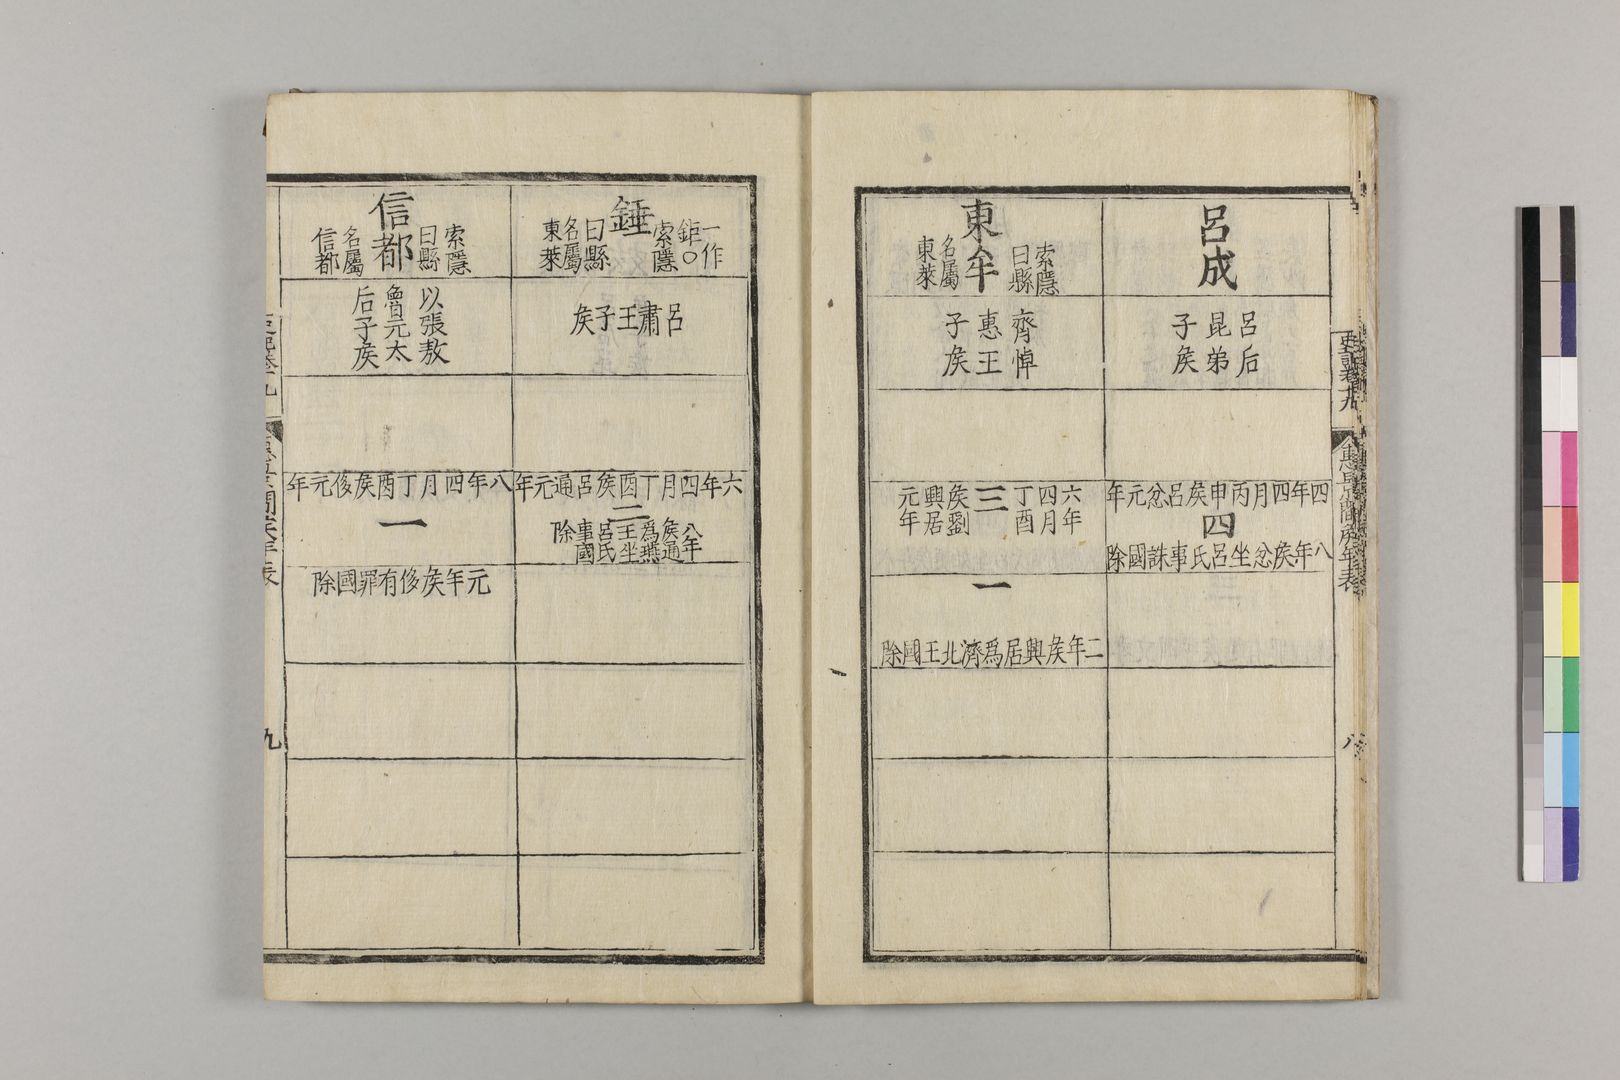 史記卷十九
惠景間矦年表
八
呂成
呂后
昆弟
子矦
四年四月丙申矦呂忿元年
四
八年矦忿坐呂氏事誅國除
東牟
索隱
曰縣
名屬
東萊
齊悼
惠王
子矦
六年
四月
丁酉
三
矦劉
興居
元年
一
二年矦興居爲濟北王國除
錘
一作
鉅○
索隱
曰縣
名屬
東萊
呂肅王子矦
六年四月丁酉矦呂通元年
二
八年
矦通
爲燕
王坐
呂氏
事國
除
信都
索隱
曰縣
名屬
信都
以張敖
魯元太
后子矦
八年四月丁酉矦侈元年
一
元年矦侈有罪國除
九